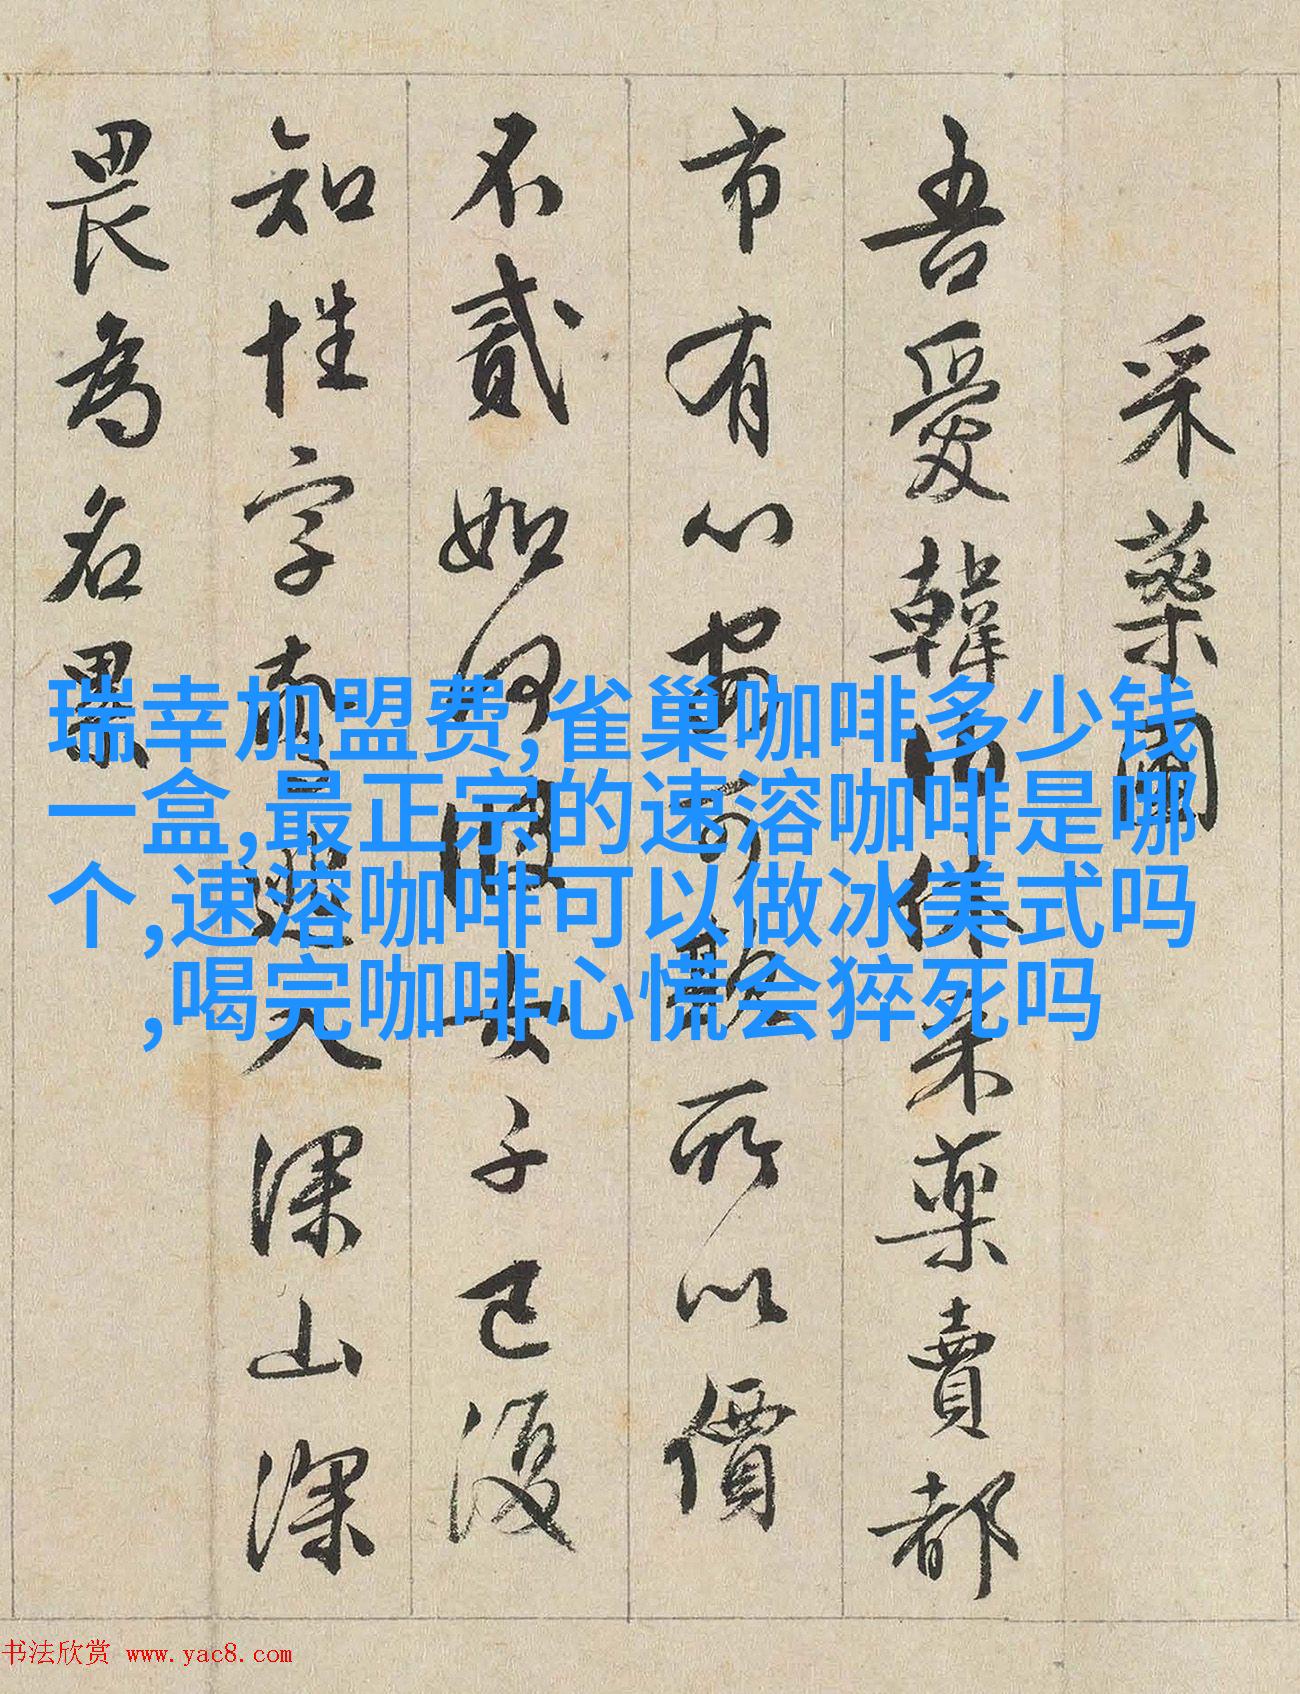 采藥圖
吾愛韓伯休采藥賣都
市有心安可欺所以價
不貳如何女子已復
知性字入深山深
畏為名累
瑞幸加盟费,雀巢咖啡多少钱
一盒,最正宗的速溶咖啡是哪
个,速溶咖啡可以做冰美式吗
,喝完咖啡心慌会猝死吗
书法欣赏 www.yac8.com